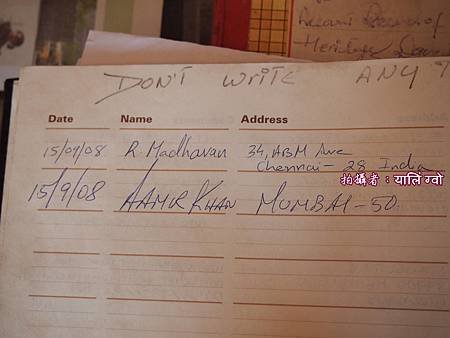 DON'T WRITE ANY
Date Name Address
15/09/08 R. Madhavan 34, ABM Ave
Chennai - 28 India
拍攝者：यालि ग्वो
15/9/08 AAMIR KHAN MUMBAI - 50.